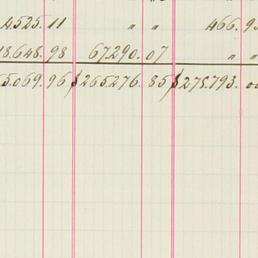 4.525.11 " " 466.9
18.648.98 67.290.07 " "
5.069.96 $265.276.85 $278.793.00